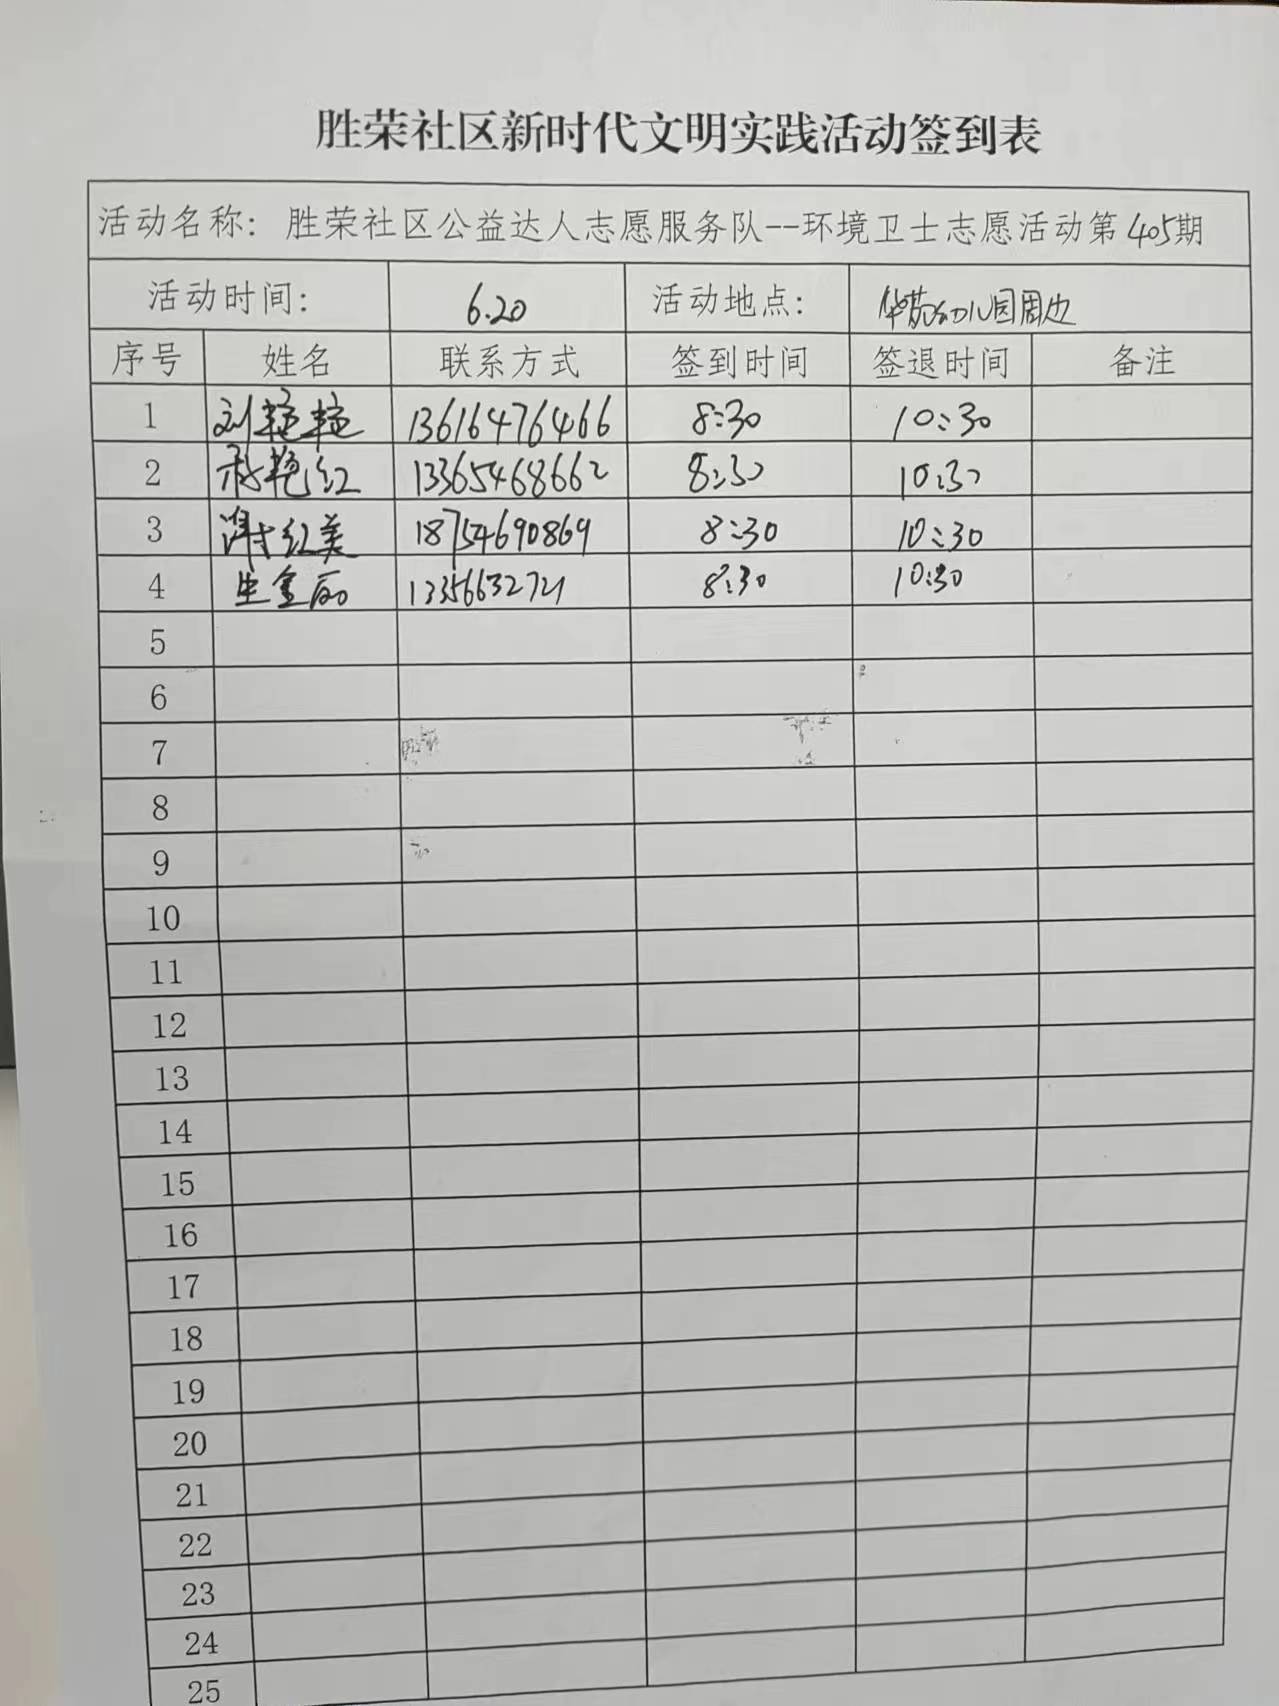 胜荣社区新时代文明实践活动签到表
活动名称：胜荣社区公益达人志愿服务队--环境卫士志愿活动第405期
活动时间： 6.20 活动地点： 华苑幼儿园周边
序号 姓名 联系方式 签到时间 签退时间 备注
1 刘艳艳 13616476466 8:30 10:30
2 艳红 13365468662 8:30 10:30
3 谢红美 18754690869 8:30 10:30
4 生金丽 13356632721 8:30 10:30
5
6
7
8
9
10
11
12
13
14
15
16
17
18
19
20
21
22
23
24
25